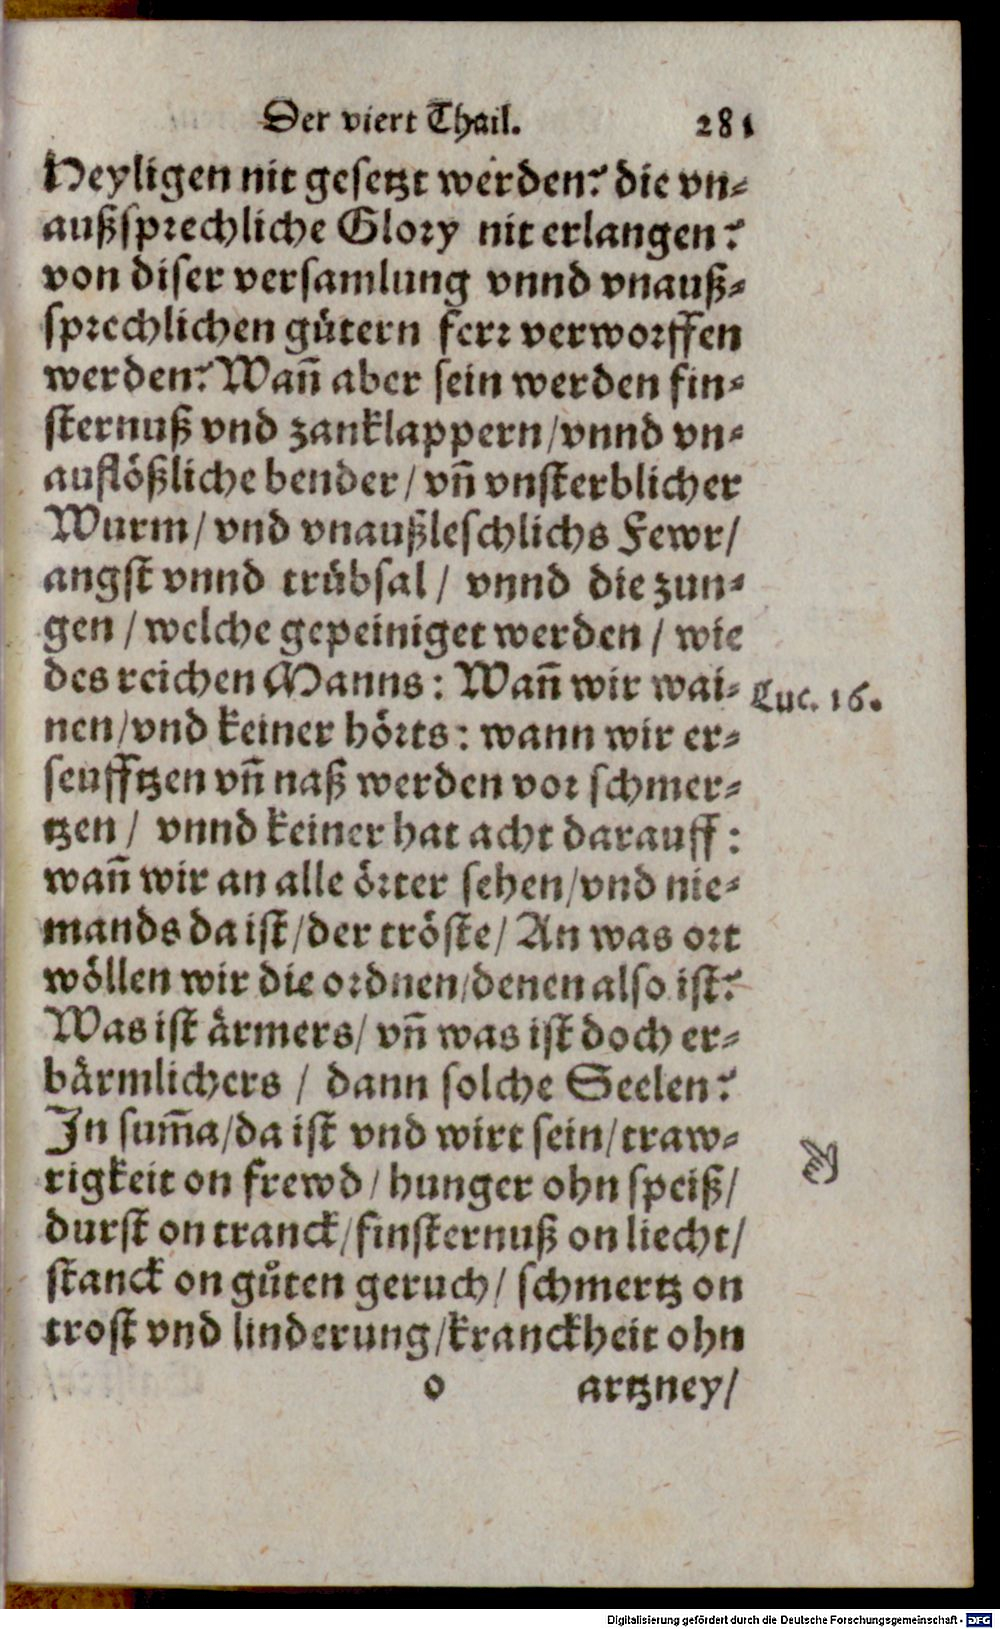 Der viert Thail. 281
Heyligen nit gesetzt werden? die vn-
außsprechliche Glory nit erlangen?
von diser versamlung vnnd vnauß-
sprechlichen gütern ferr verworffen
werden? Wañ aber sein werden fin-
sternuß vnd zanklappern/vnnd vn-
auflößliche bender/ vñ vnsterblicher
Wurm/ vnd vnaußleschlichs Fewr/
angst vnnd trübsal/ vnnd die zun-
gen/ welche gepeiniget werden/ wie
des reichen Manns: Wañ wir wai-
Luc. 16.
nen/vnd keiner hörts: wann wir er-
seufftzen vñ naß werden vor schmer-
tzen/ vnnd keiner hat acht darauff:
wañ wir an alle örter sehen/vnd nie-
mands da ist/der tröste/ An was ort
wöllen wir die ordnen/denen also ist?
Was ist ärmers/ vñ was ist doch er-
bärmlichers / dann solche Seelen?
In sum̃a/da ist vnd wirt sein/traw-
rigkeit on frewd/ hunger ohn speiß/
durst on tranck/finsternuß on liecht/
stanck on gůten geruch/ schmertz on
trost vnd linderung/kranckheit ohn
o artzney/
Digitalisierung gefördert durch die Deutsche Forschungsgemeinschaft - DFG